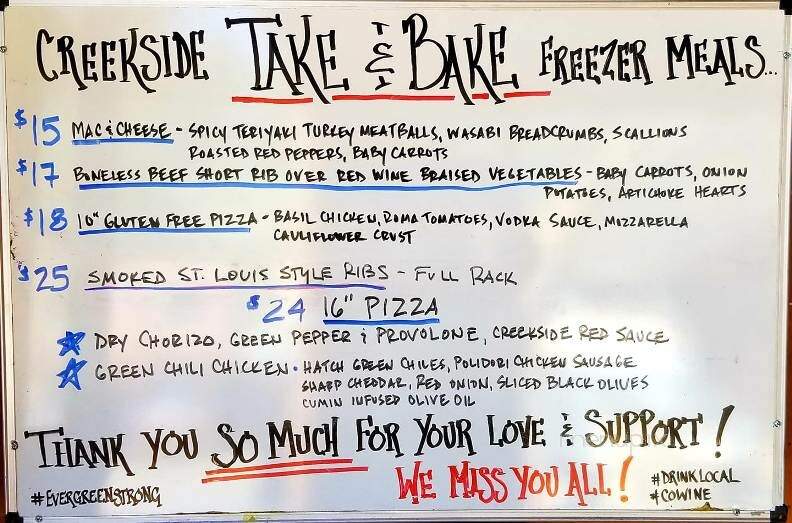 CREEKSIDE TAKE & BAKE FREEZER MEALS...
$15 MAC & CHEESE - SPICY TERIYAKI TURKEY MEATBALLS, WASABI BREADCRUMBS, SCALLIONS
ROASTED RED PEPPERS, BABY CARROTS
$17 BONELESS BEEF SHORT RIB OVER RED WINE BRAISED VEGETABLES - BABY CARROTS, ONION
POTATOES, ARTICHOKE HEARTS
$18 10" GLUTEN FREE PIZZA - BASIL CHICKEN, ROMA TOMATOES, VODKA SAUCE, MOZZARELLA
CAULIFLOWER CRUST
$25 SMOKED ST. LOUIS STYLE RIBS - FULL RACK
$24 16" PIZZA
DRY CHORIZO, GREEN PEPPER & PROVOLONE, CREEKSIDE RED SAUCE
GREEN CHILI CHICKEN • HATCH GREEN CHILES, POLIDORI CHICKEN SAUSAGE
SHARP CHEDDAR, RED ONION, SLICED BLACK OLIVES
CUMIN INFUSED OLIVE OIL
THANK YOU SO MUCH FOR YOUR LOVE & SUPPORT!
WE MISS YOU ALL!
#EVERGREENSTRONG
#DRINKLOCAL
#COWINE